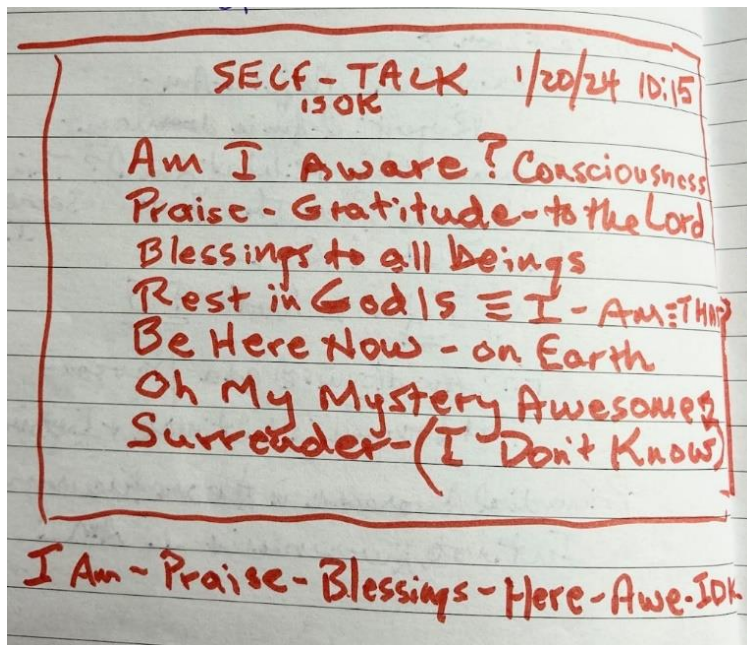 SELF-TALK 1/20/24 10:15
IS OK
Am I Aware? Consciousness
Praise - Gratitude - to the Lord
Blessings to all beings
Rest in God Is ≡ I - AM ≡ THAT
Be Here Now - on Earth
Oh My Mystery Awesome
Surrender - (I Don't Know)
I Am - Praise - Blessings - Here - Awe - IDK